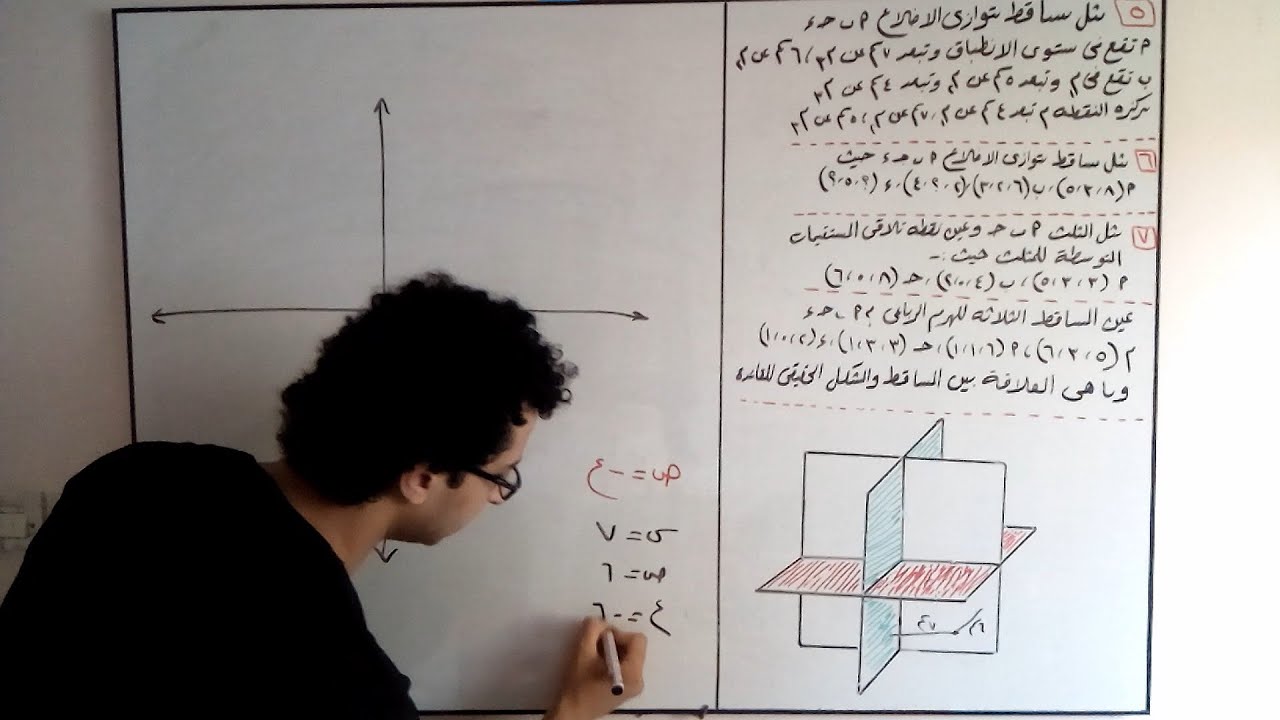 ٥ مثل مساقط متوازى الاضلاع ٢ ب حـ ء
٢ تقع فى مستوى الانطباق وتبعد ٧سم عن م٣ ، ٦سم عن م١
ب تقع فى م١ وتبعد ٥سم عن م٢ وتبعد ٤سم عن م٣
مركزه النقطه م تبعد ٤سم عن م٢ ، ٧سم عن م١ ، ٥سم عن م٣
٦ مثل مساقط متوازى الاضلاع ٢ ب حـ ء حيث
٢ (٨ ، ٣ ، ٥) ، ب (٦ ، ٢ ، ٣) ، (٢ ، ؟ ، ٤) ، ء (؟ ، ٥ ، ؟)
٧ مثل المثلث ٢ ب حـ وعين نقطه تلاقى المستقيمات
المتوسطة للمثلث حيث :-
٢ (٣ ، ٣ ، ٥) ، ب (٤ ، ٠ ، ٢) ، حـ (٨ ، ٥ ، ٦)
عين المساقط الثلاثه للهرم الرباعى م ٢ ب حـ ء
م (٥ ، ٣ ، ٦) ، ٢ (٦ ، ١ ، ١) ، حـ (٣ ، ٣ ، ١) ، ء (٢ ، ٠ ، ١)
وما هى العلاقة بين المساقط والشكل الحقيقى للقاعده
ص = - ع
س = ٧
ص = ٦
ع = - ٦
٧سم
٦سم